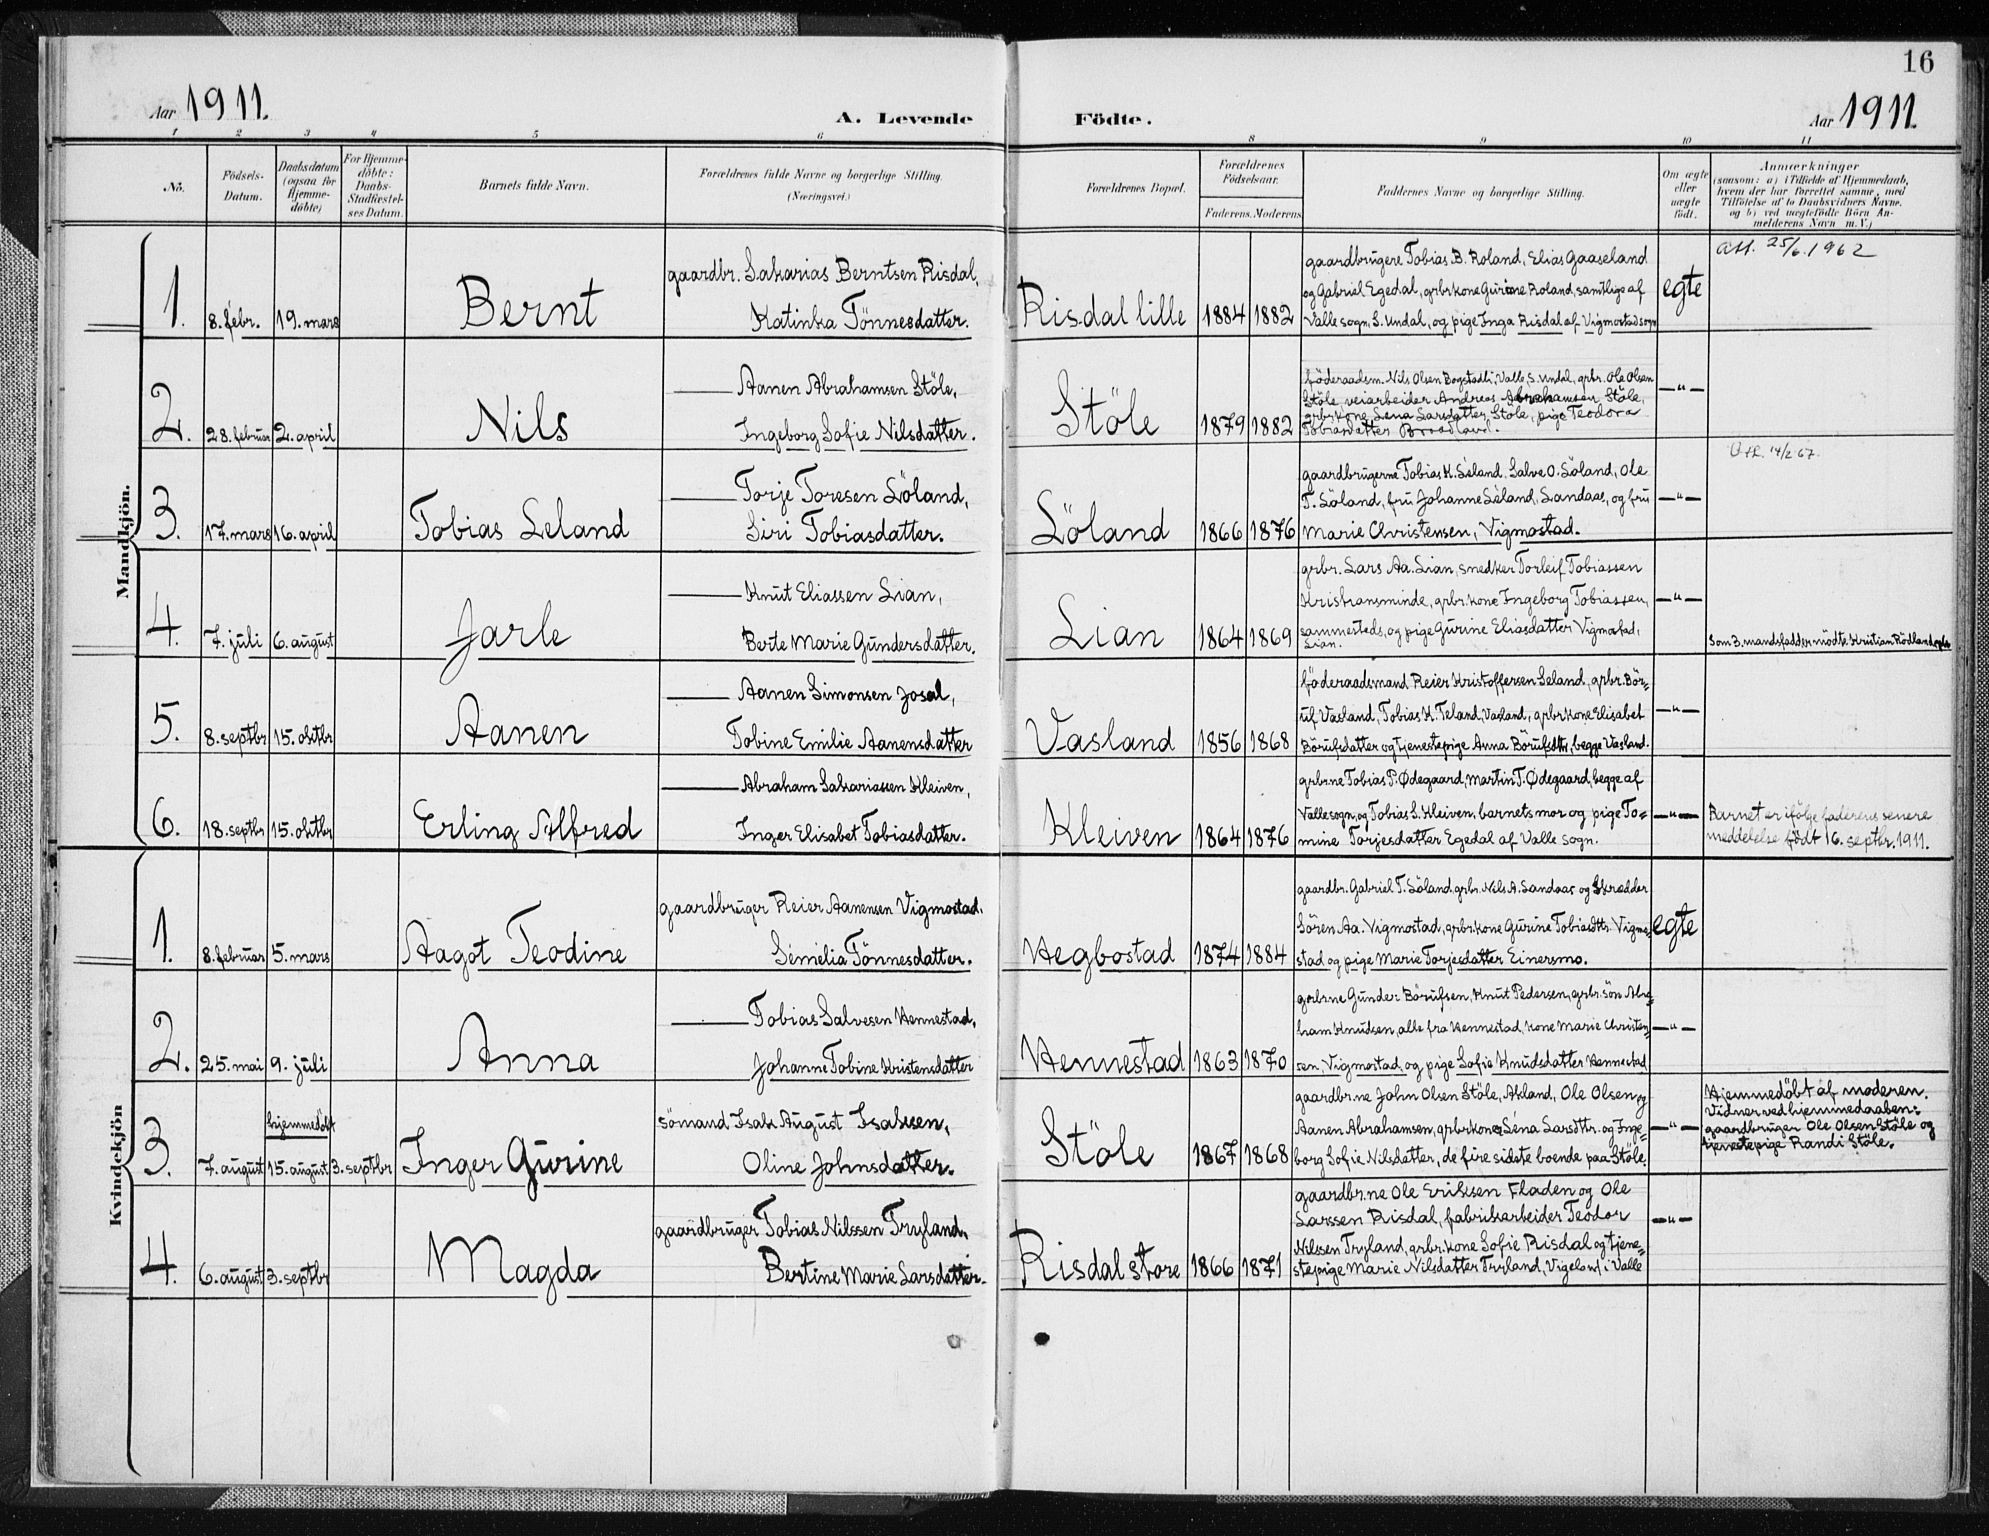 16
Aar 1911.
A. Levende Födte.
Aar 1911.
1 2 3 4 5 6 8 9 10 11
No.
Födsels-
Datum.
Daabsdatum
(ogsaa for
Hjemme-
döbte)
For Hjemme-
döbte:
Daabs-
Stadfæstel-
ses Datum.
Barnets fulde Navn.
Forældrenes fulde Navne og borgerlige Stilling.
(Næringsvei.)
Forældrenes Bopæl.
Forældrenes
Födselsaar.
Faderens. Moderens.
Faddernes Navne og borgerlige Stilling.
Om ægte
eller
uægte
födt.
Anmærkninger
(saasom: a) i Tilfælde af Hjemmedaab,
hvem der har forrettet samme, med
Tilföielse af to Daabsvidners Navne.
og b) ved uægtefödte Börn An-
melderens Navn m. V.)
Mandkjön.
1. 8. febr. 19. mars Bernt
gaardbr. Sakarias Berntsen Risdal,
Katinka Tönnesdatter.
Risdal lille 1884 1882
gaardbrugere Tobias B. Roland, Elias Gaaseland
og Gabriel Egedal, grbr.kone Gurine Roland, samtlige af
Valle sogn, S. Undal, og pige Inga Risdal af Vigmostad sogn
egte
att. 25/6. 1962
2. 28. februar 2. april Nils
— Aanen Abrahamsen Stöle,
Ingeborg Sofie Nilsdatter.
Stöle 1879 1882
föderaadsm. Nils Olsen Bogstadli, Valle, S. Undal, grbr. Ole Olsen
Stöle, veiarbeider Andreas Abrahamsen Stöle,
grbr.kone Lena Larsdatter Stöle, pige Teodora
Tobiasdatter
—"—
3. 17. mars 16. april Tobias Leland
— Torje Toresen Löland,
Siri Tobiasdatter.
Löland 1866 1876
gaardbrugerne Tobias K. Leland, Salve O. Löland, Ole
T. Löland, fru Johanne Leland, Sandaas, og fru
Marie Christensen, Vigmostad.
—"—
14/2 67.
4. 7. juli 6. august Jarle
— Knut Eliassen Lian,
Berte Marie Gundersdatter.
Lian 1864 1869
grbr. Lars Aa. Lian, snedker Torleif Tobiassen
Kristiansminde, grbr.kone Ingeborg Tobiassen,
sammesteds, og pige Gurine Eliasdatter Vigmostad,
Lian.
—"—
Som 3. mandsfadder mödte Kristian Rödland
5. 8. septbr 15. oktbr Aanen
— Aanen Simonsen Josal,
Tobine Emilie Aanensdatter
Vasland 1856 1868
föderaadsmand Reier Kristoffersen Leland, grbr. Bör=
uf Vasland, Tobias K. Teland, Vasland, grbr.kone Elisabet
Börufsdatter og tjenestepige Anna Börufsdtr, begge Vasland.
—"—
6. 18. septbr 15. oktbr Erling Alfred
— Abraham Sakariassen Kleiven,
Inger Elisabet Tobiasdatter.
Kleiven 1864 1876
grbr.ne Tobias P. Ødegaard, Martin T. Ødegaard, begge af
Valle sogn, og Tobias S. Kleiven, barnets mor og pige To=
mine Torjesdatter Egedal af Valle sogn.
—"—
Barnet er ifölge faderens senere
meddelelse födt 16. septbr. 1911.
Kvindekjön
1. 8. februar 5. mars Aagot Teodine
gaardbruger Reier Aanensen Vigmostad,
Semelia Tönnesdatter.
Hegbostad 1874 1884
gaardbr. Gabriel T. Löland, grbr. Nils A. Sandaas og Skrædder
Sören Aa. Vigmostad, grbr.kone Gurine Tobiasdtr. Vigmo=
stad og pige Marie Torjesdatter Einersmo.
egte
2. 25. mai 9. juli Anna
— Tobias Salvesen Hennestad,
Johanne Tobine Kristensdatter
Hennestad 1863 1870
grbr.ne Gunder Börufsen, Knut Pedersen, grbr. sön Abra=
ham Knudsen, alle fra Hennestad, kone Marie Christen=
sen, Vigmostad og pige Sofie Knudsdatter Hennestad
—"—
3. 7. august hjemmedöbt 15. august 3. septbr Inger Gurine
sömand Isak August Isaksen,
Oline Johnsdatter.
Stöle 1867 1868
gaardbr.ne John Olsen Stöle, Akland, Ole Olsen og
Aanen Abrahamsen, grbr.kone Lena Larsdttr. og Inge=
borg Sofie Nilsdatter, de fire sidste boende paa Stöle.
—"—
Hjemmedöbt af moderen.
Vidner ved hjemmedaaben:
gaardbruger Ole Olsen Stöle og
tjenestepige Randi Stöle.
4. 6. august 3. septbr Magda
gaardbruger Tobias Nilssen Tryland,
Bertine Marie Larsdatter.
Risdal store 1866 1871
gaardbr.ne Ole Eriksen Fladen og Ole
Larssen Risdal, fabrikarbeider Teodor
Nilssen Tryland, grbr.kone Sofie Risdal og tjene=
stepige Marie Nilsdatter Tryland, Vigeland i Valle
—"—